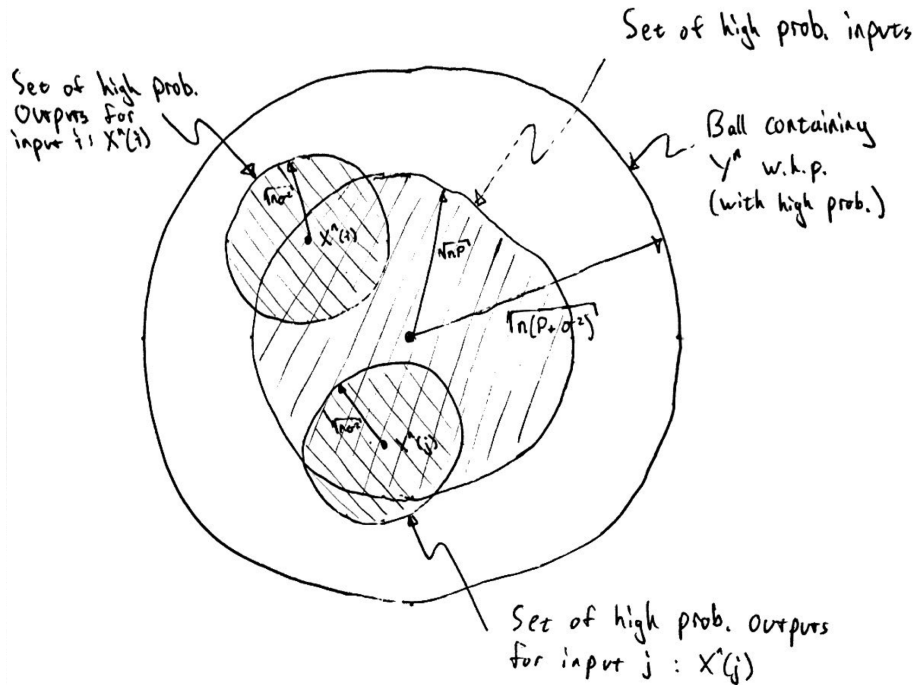 Set of high prob. inputs
Set of high prob.
Outputs for
input i: Xⁿ(i)
Ball containing
Yⁿ w.h.p.
(with high prob.)
√nσ²
Xⁿ(i)
√nP
√n(P+σ²)
√nσ²
Xⁿ(j)
Set of high prob. outputs
for input j : Xⁿ(j)